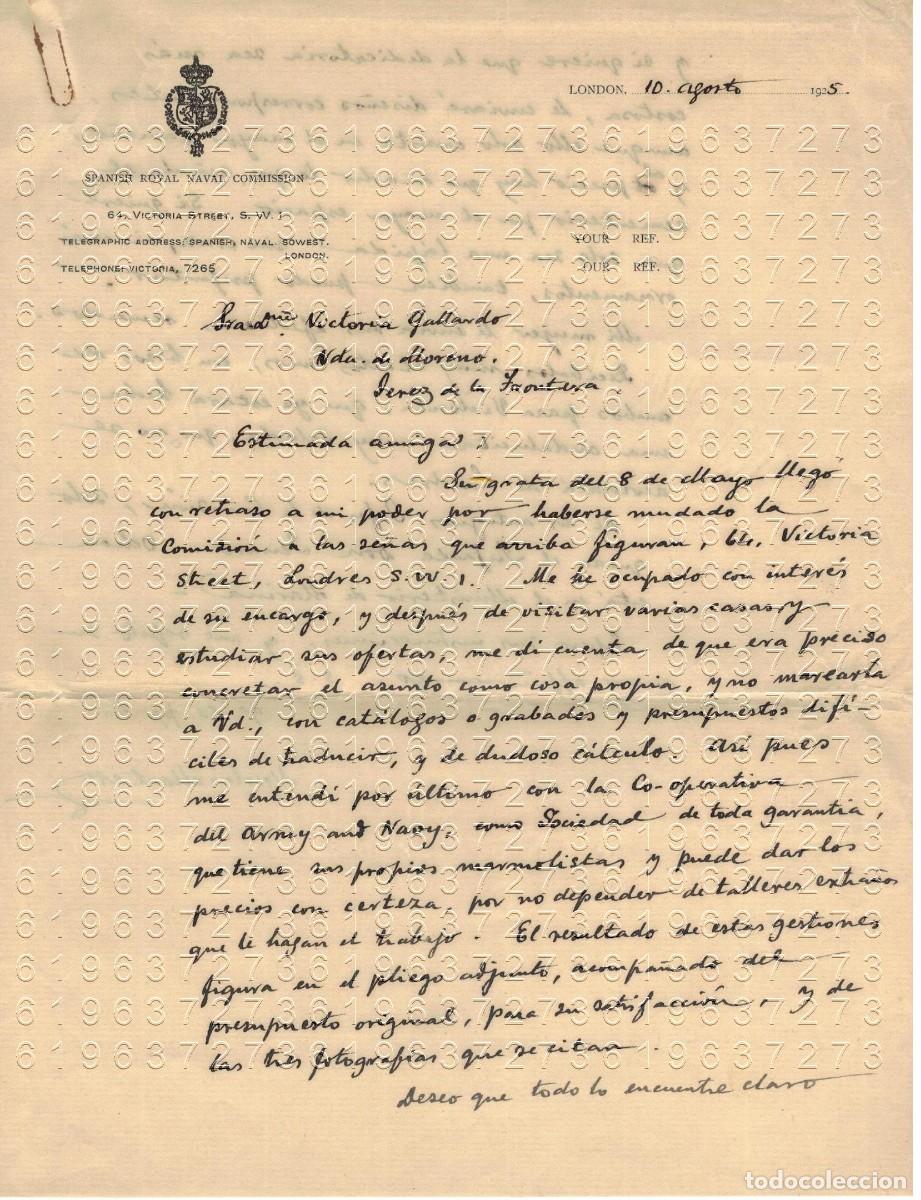 LONDON, 10. agosto 1925.
SPANISH ROYAL NAVAL COMMISSION
64, VICTORIA STREET, S. W. 1
TELEGRAPHIC ADDRESS: SPANISH, NAVAL, SOWEST.
LONDON.
TELEPHONE: VICTORIA, 7265
YOUR REF.
OUR REF.
Sra dña Victoria Gallardo
Vda. de Moreno.
Jerez de la Frontera.
Estimada amiga:
Su grata del 8 de Mayo llegó
con retraso a mi poder por haberse mudado la
Comisión a las señas que arriba figuran, 64, Victoria
Street, Londres S.W.1. Me he ocupado con interés
de su encargo, y después de visitar varias casas y
estudiar sus ofertas, me di cuenta de que era preciso
concretar el asunto como cosa propia, y no marearla
a Vd., con catálogos o grabados y presupuestos difí-
ciles de traducir, y de dudoso cálculo. Así pues
me entendí por último con la Co-operativa
del Army and Navy, como Sociedad de toda garantía,
que tiene sus propios marmolistas y puede dar los
precios con certeza, por no depender de talleres extraños
que le hagan el trabajo. El resultado de estas gestiones
figura en el pliego adjunto, acompañado del
presupuesto original, para su satisfacción, y de
las tres fotografías que se citan.
Deseo que todo lo encuentre claro
619637273619637273619637273
todocoleccion